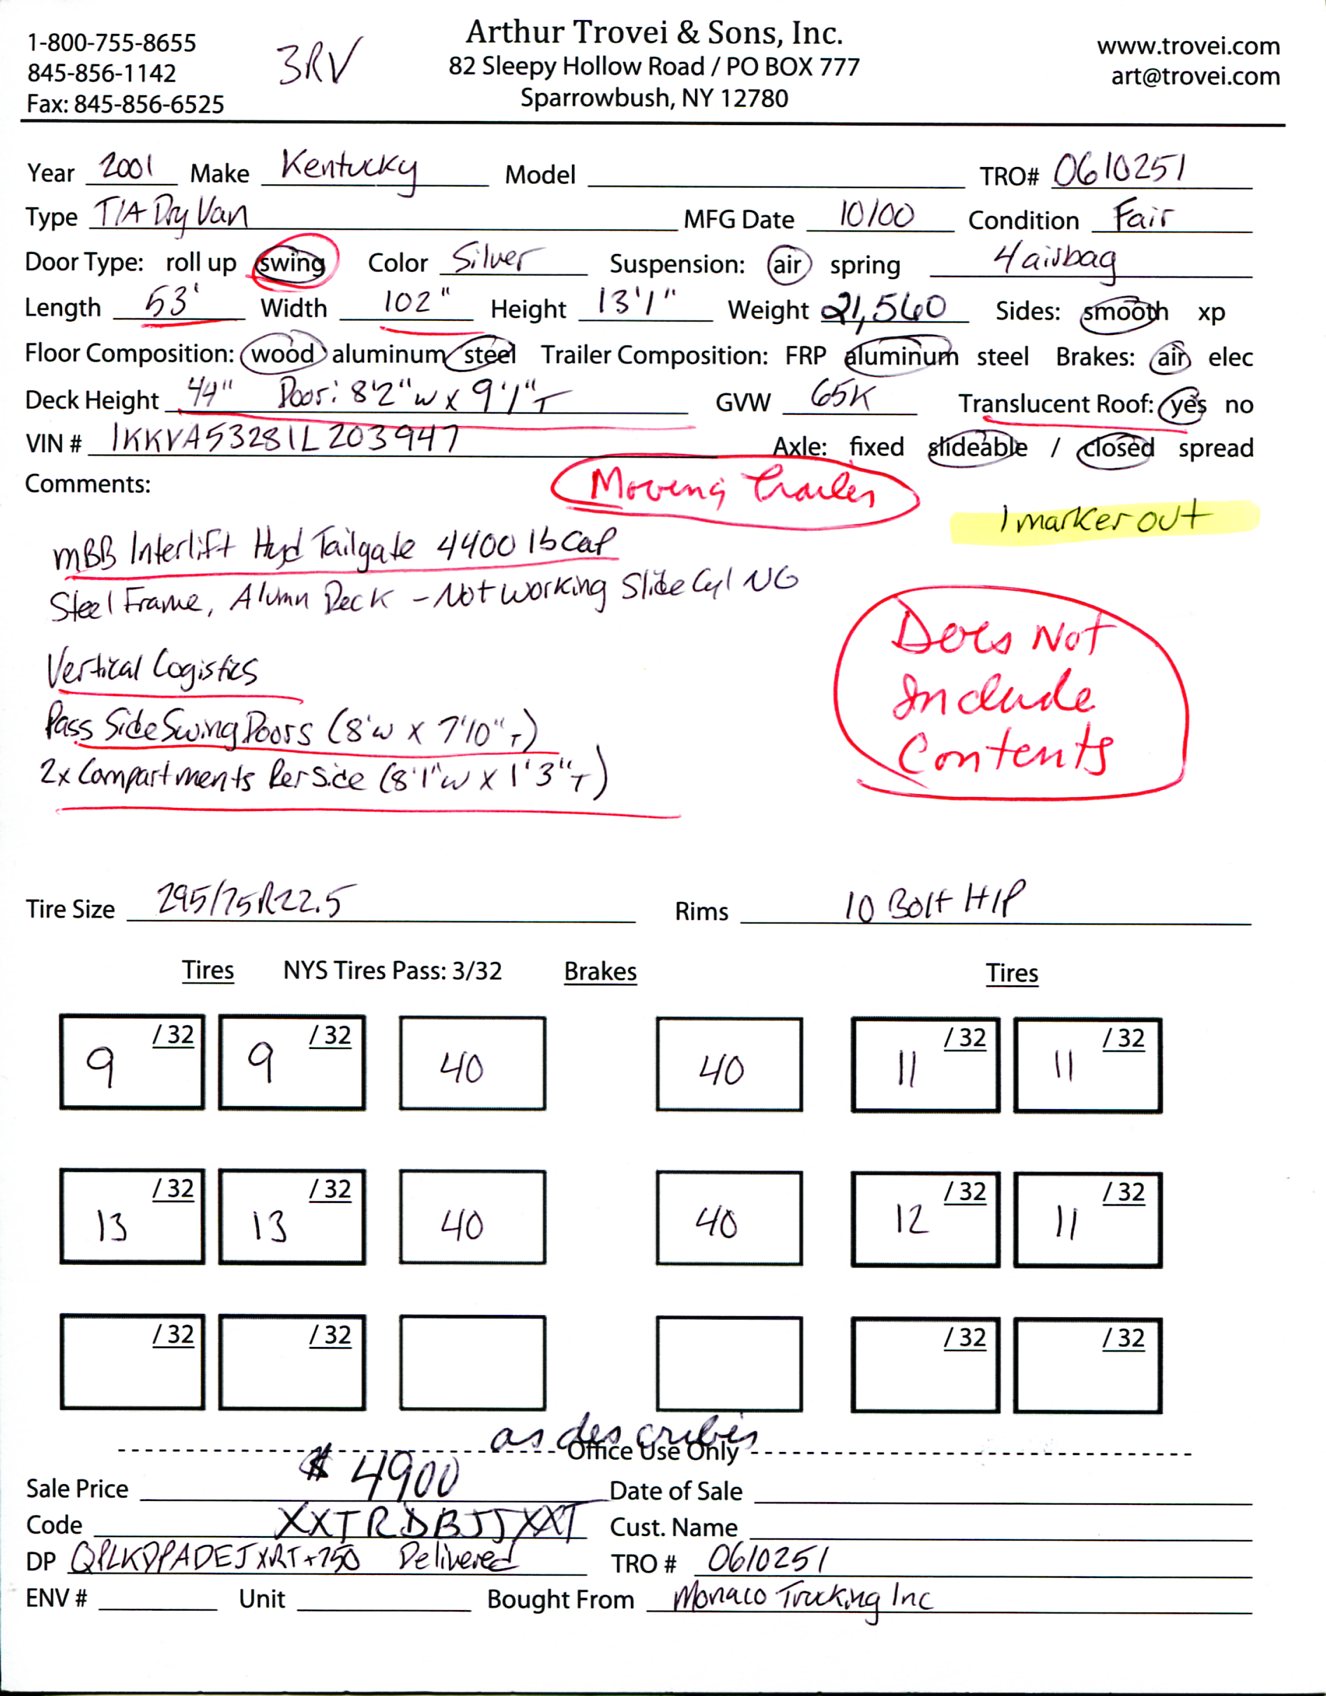 1-800-755-8655
845-856-1142
Fax: 845-856-6525
3RV
Arthur Trovei & Sons, Inc.
82 Sleepy Hollow Road / PO BOX 777
Sparrowbush, NY 12780
www.trovei.com
art@trovei.com
Year 2001 Make Kentucky Model TRO# 0610251
Type T/A Dry Van MFG Date 10/00 Condition Fair
Door Type: roll up swing Color Silver Suspension: air spring 4 airbag
Length 53' Width 102" Height 13'1" Weight 21,560 Sides: smooth xp
Floor Composition: wood aluminum steel Trailer Composition: FRP aluminum steel Brakes: air elec
Deck Height 44" Door: 8'2"W x 9'1"T GVW 65K Translucent Roof: yes no
VIN # 1KKVA53281L203947 Axle: fixed slideable / closed spread
Comments:
Moving Trailer
1 marker out
MBB Interlift Hyd Tailgate 4400 lb Cap
Steel Frame, Alumn Deck - Not Working Slide Cyl NG
Does Not
Include
Contents
Vertical Logistics
Pass Side Swing Doors (8'W x 7'10"T)
2x Compartments Per Side (8'1"W x 1'3"T)
Tire Size 295/75R22.5 Rims 10 Bolt H/P
Tires NYS Tires Pass: 3/32 Brakes Tires
9 /32 9 /32 40 40 11 /32 11 /32
13 /32 13 /32 40 40 12 /32 11 /32
/32 /32 /32 /32
as describes
Office Use Only
Sale Price $4900 Date of Sale
Code XXTRDBJJXXT Cust. Name
DP QPLKDPADEJXRT+750 Delivered TRO # 0610251
ENV # Unit Bought From Monaco Trucking Inc